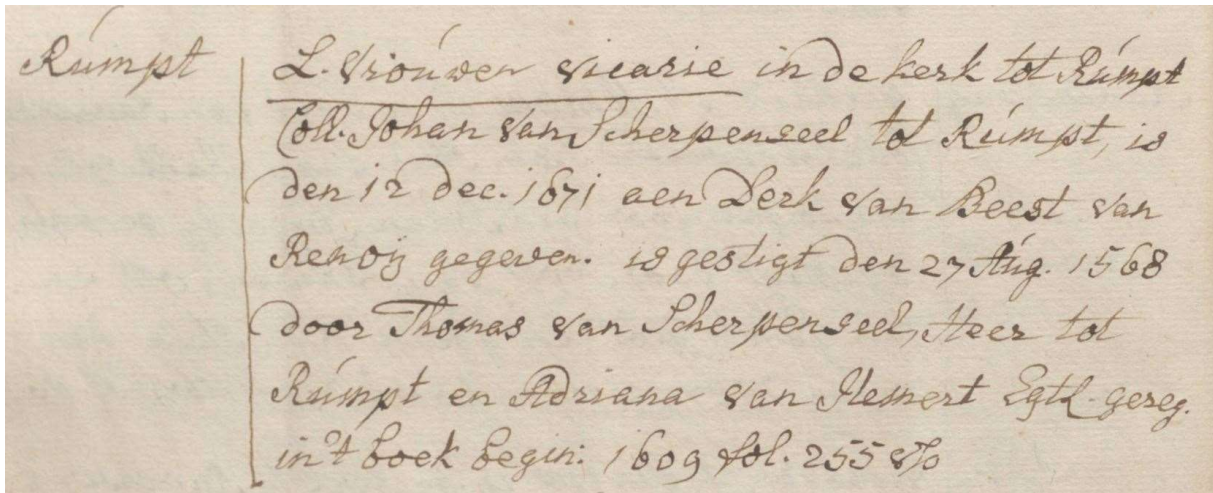 Rumpt
L. Vrouwen vicarie in de kerk tot Rumpt
Coll. Johan van Scherpenseel tot Rumpt, is
den 12 dec. 1671 aen Derk van Beest van
Renoij gegeven. is gestigt den 27 Aug. 1568
door Thomas van Scherpenseel, Heer tot
Rumpt en Adriana van Hemert Egtl. gereg.
in't boek begin: 1609 fol. 255 vo